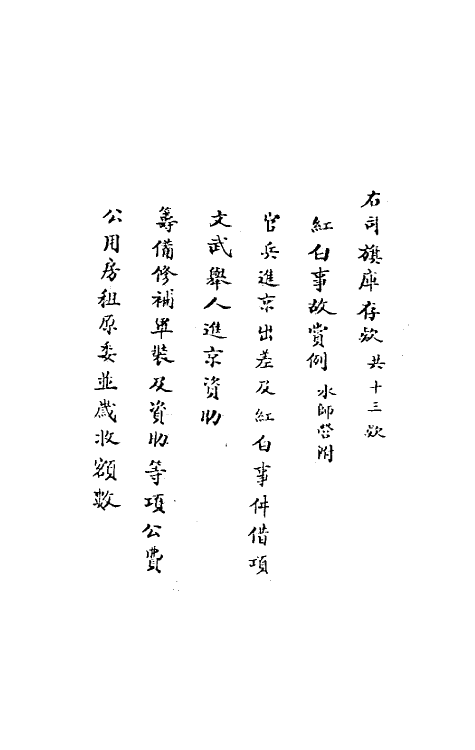 右司旗庫存欵共十三欵
紅白事故賞例水師營附
官兵進京出差及紅白事件借項
文武舉人進京資助
籌備修補軍裝及資助等項公費
公用房租原委並歲收額數